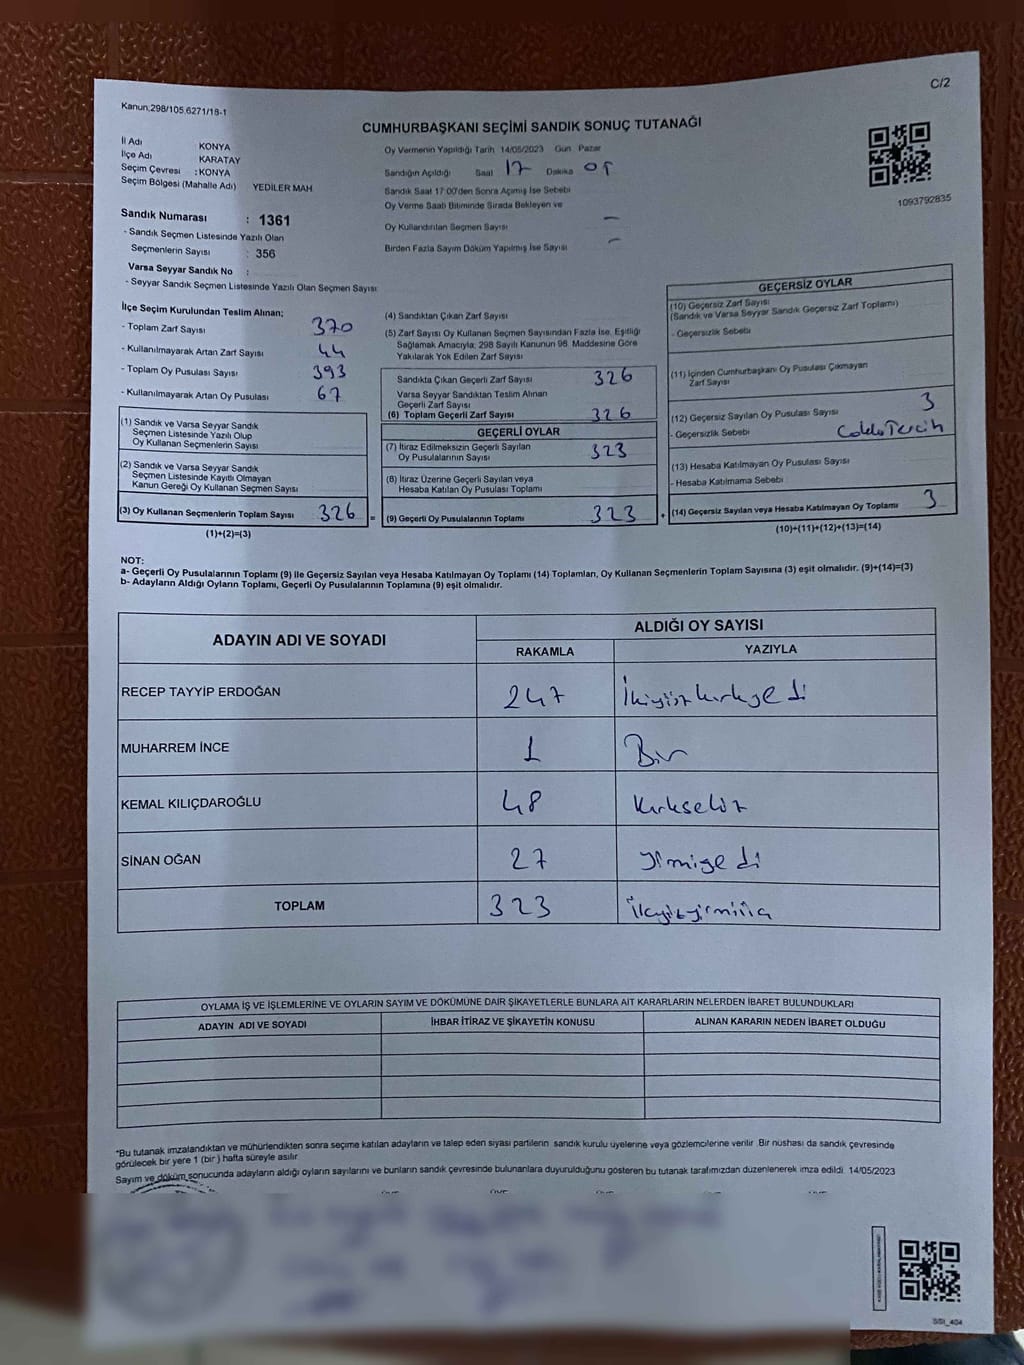 C/2
Kanun.298/105.6271/18-1
CUMHURBAŞKANI SEÇİMİ SANDIK SONUÇ TUTANAĞI
İl Adı KONYA
İlçe Adı KARATAY
Seçim Çevresi : KONYA
Seçim Bölgesi (Mahalle Adı) YEDİLER MAH
Oy Vermenin Yapıldığı Tarih 14/05/2023 Gün Pazar
Sandığın Açıldığı Saat 17 Dakika
Sandık Saat 17:00'den Sonra Açımış İse Sebebi
Oy Verme Saati Bitiminde Sırada Bekleyen ve
Oy Kullandırılan Seçmen Sayısı —
Birden Fazla Sayım Döküm Yapılmış İse Sayısı —
1093792835
Sandık Numarası : 1361
- Sandık Seçmen Listesinde Yazılı Olan
Seçmenlerin Sayısı : 356
Varsa Seyyar Sandık No :
- Seyyar Sandık Seçmen Listesinde Yazılı Olan Seçmen Sayısı
İlçe Seçim Kurulundan Teslim Alınan;
- Toplam Zarf Sayısı 370
- Kullanılmayarak Artan Zarf Sayısı 44
- Toplam Oy Pusulası Sayısı 393
- Kullanılmayarak Artan Oy Pusulası 67
(1) Sandık ve Varsa Seyyar Sandık
Seçmen Listesinde Yazılı Olup
Oy Kullanan Seçmenlerin Sayısı
(2) Sandık ve Varsa Seyyar Sandık
Seçmen Listesinde Kayıtlı Olmayan
Kanun Gereği Oy Kullanan Seçmen Sayısı
(3) Oy Kullanan Seçmenlerin Toplam Sayısı 326 =
(1)+(2)=(3)
(4) Sandıktan Çıkan Zarf Sayısı
(5) Zarf Sayısı Oy Kullanan Seçmen Sayısından Fazla İse, Eşitliği
Sağlamak Amacıyla; 298 Sayılı Kanunun 98. Maddesine Göre
Yakılarak Yok Edilen Zarf Sayısı
Sandıkta Çıkan Geçerli Zarf Sayısı 326
Varsa Seyyar Sandıktan Teslim Alınan
Geçerli Zarf Sayısı
(6) Toplam Geçerli Zarf Sayısı 326
GEÇERLİ OYLAR
(7) İtiraz Edilmeksizin Geçerli Sayılan
Oy Pusulalarının Sayısı 323
(8) İtiraz Üzerine Geçerli Sayılan veya
Hesaba Katılan Oy Pusulası Toplamı
(9) Geçerli Oy Pusulalarının Toplamı 323 +
GEÇERSİZ OYLAR
(10) Geçersiz Zarf Sayısı
(Sandık ve Varsa Seyyar Sandık Geçersiz Zarf Toplamı)
- Geçersizlik Sebebi
(11) İçinden Cumhurbaşkanı Oy Pusulası Çıkmayan
Zarf Sayısı
(12) Geçersiz Sayılan Oy Pusulası Sayısı 3
- Geçersizlik Sebebi Tercih
(13) Hesaba Katılmayan Oy Pusulası Sayısı
- Hesaba Katılmama Sebebi
(14) Geçersiz Sayılan veya Hesaba Katılmayan Oy Toplamı 3
(10)+(11)+(12)+(13)=(14)
NOT:
a- Geçerli Oy Pusulalarının Toplamı (9) ile Geçersiz Sayılan veya Hesaba Katılmayan Oy Toplamı (14) Toplamları, Oy Kullanan Seçmenlerin Toplam Sayısına (3) eşit olmalıdır. (9)+(14)=(3)
b- Adayların Aldığı Oyların Toplamı, Geçerli Oy Pusulalarının Toplamına (9) eşit olmalıdır.
ADAYIN ADI VE SOYADI ALDIĞI OY SAYISI
RAKAMLA YAZIYLA
RECEP TAYYİP ERDOĞAN 247 İkiyüzkırkyedi
MUHARREM İNCE 1 Bir
KEMAL KILIÇDAROĞLU 48 Kırksekiz
SİNAN OĞAN 27 Yirmiyedi
TOPLAM 323
OYLAMA İŞ VE İŞLEMLERİNE VE OYLARIN SAYIM VE DÖKÜMÜNE DAİR ŞİKAYETLERLE BUNLARA AİT KARARLARIN NELERDEN İBARET BULUNDUKLARI
ADAYIN ADI VE SOYADI İHBAR İTİRAZ VE ŞİKAYETİN KONUSU ALINAN KARARIN NEDEN İBARET OLDUĞU
*Bu tutanak imzalandıktan ve mühürlendikten sonra seçime katılan adayların ve talep eden siyasi partilerin sandık kurulu üyelerine veya gözlemcilerine verilir. Bir nüshası da sandık çevresinde
görülecek bir yere 1 (bir) hafta süreyle asılır
Sayım ve döküm sonucunda adayların aldığı oyların sayılarını ve bunların sandık çevresinde bulunanlara duyurulduğunu gösteren bu tutanak tarafımızdan düzenlenerek imza edildi. 14/05/2023
SSI_404